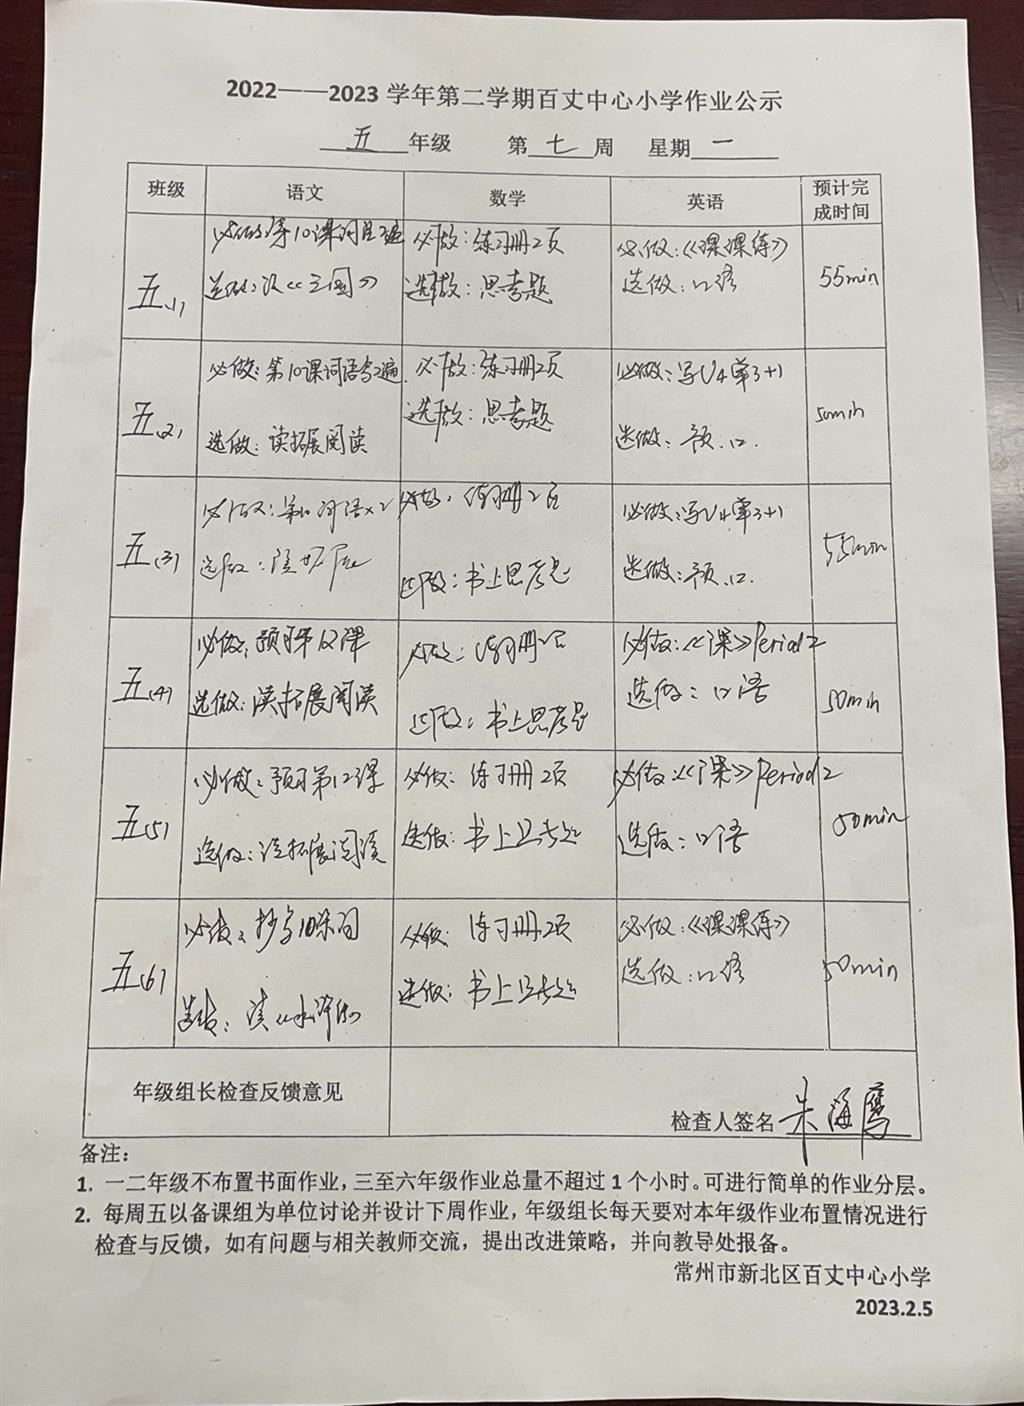 2022——2023 学年第二学期百丈中心小学作业公示
五 年级 第 七 周 星期 一
班级 语文 数学 英语 预计完成时间
五(1)
必做:第10课词语2遍
选做:读《三国》
必做:练习册2页
选做:思考题
必做:《课课练》
选做:口语
55min
五(2)
必做:第10课词语写2遍
选做:读拓展阅读
必做:练习册2页
选做:思考题
必做:写U4单3+1
选做:预.口.
50min
五(3)
必做:第10词语×2
选做:
必做:练习册2页
选做:书上思考题
必做:写U4单3+1
选做:预.口.
55min
五(4)
必做:预习第12课
选做:读拓展阅读
必做:练习册2页
选做:书上思考题
必做:《课》Period 2
选做:口语
50min
五(5)
必做:预习第12课
选做:读拓展阅读
必做:练习册2页
选做:书上思考题
必做:《课》Period 2
选做:口语
50min
五(6)
必做:抄写10课词
选做:读《水浒传》
必做:练习册2页
选做:书上思考题
必做:《课课练》
选做:口语
50min
年级组长检查反馈意见
检查人签名 朱海鹰
备注:
1. 一二年级不布置书面作业,三至六年级作业总量不超过 1 个小时。可进行简单的作业分层。
2. 每周五以备课组为单位讨论并设计下周作业,年级组长每天要对本年级作业布置情况进行
检查与反馈,如有问题与相关教师交流,提出改进策略,并向教导处报备。
常州市新北区百丈中心小学
2023.2.5